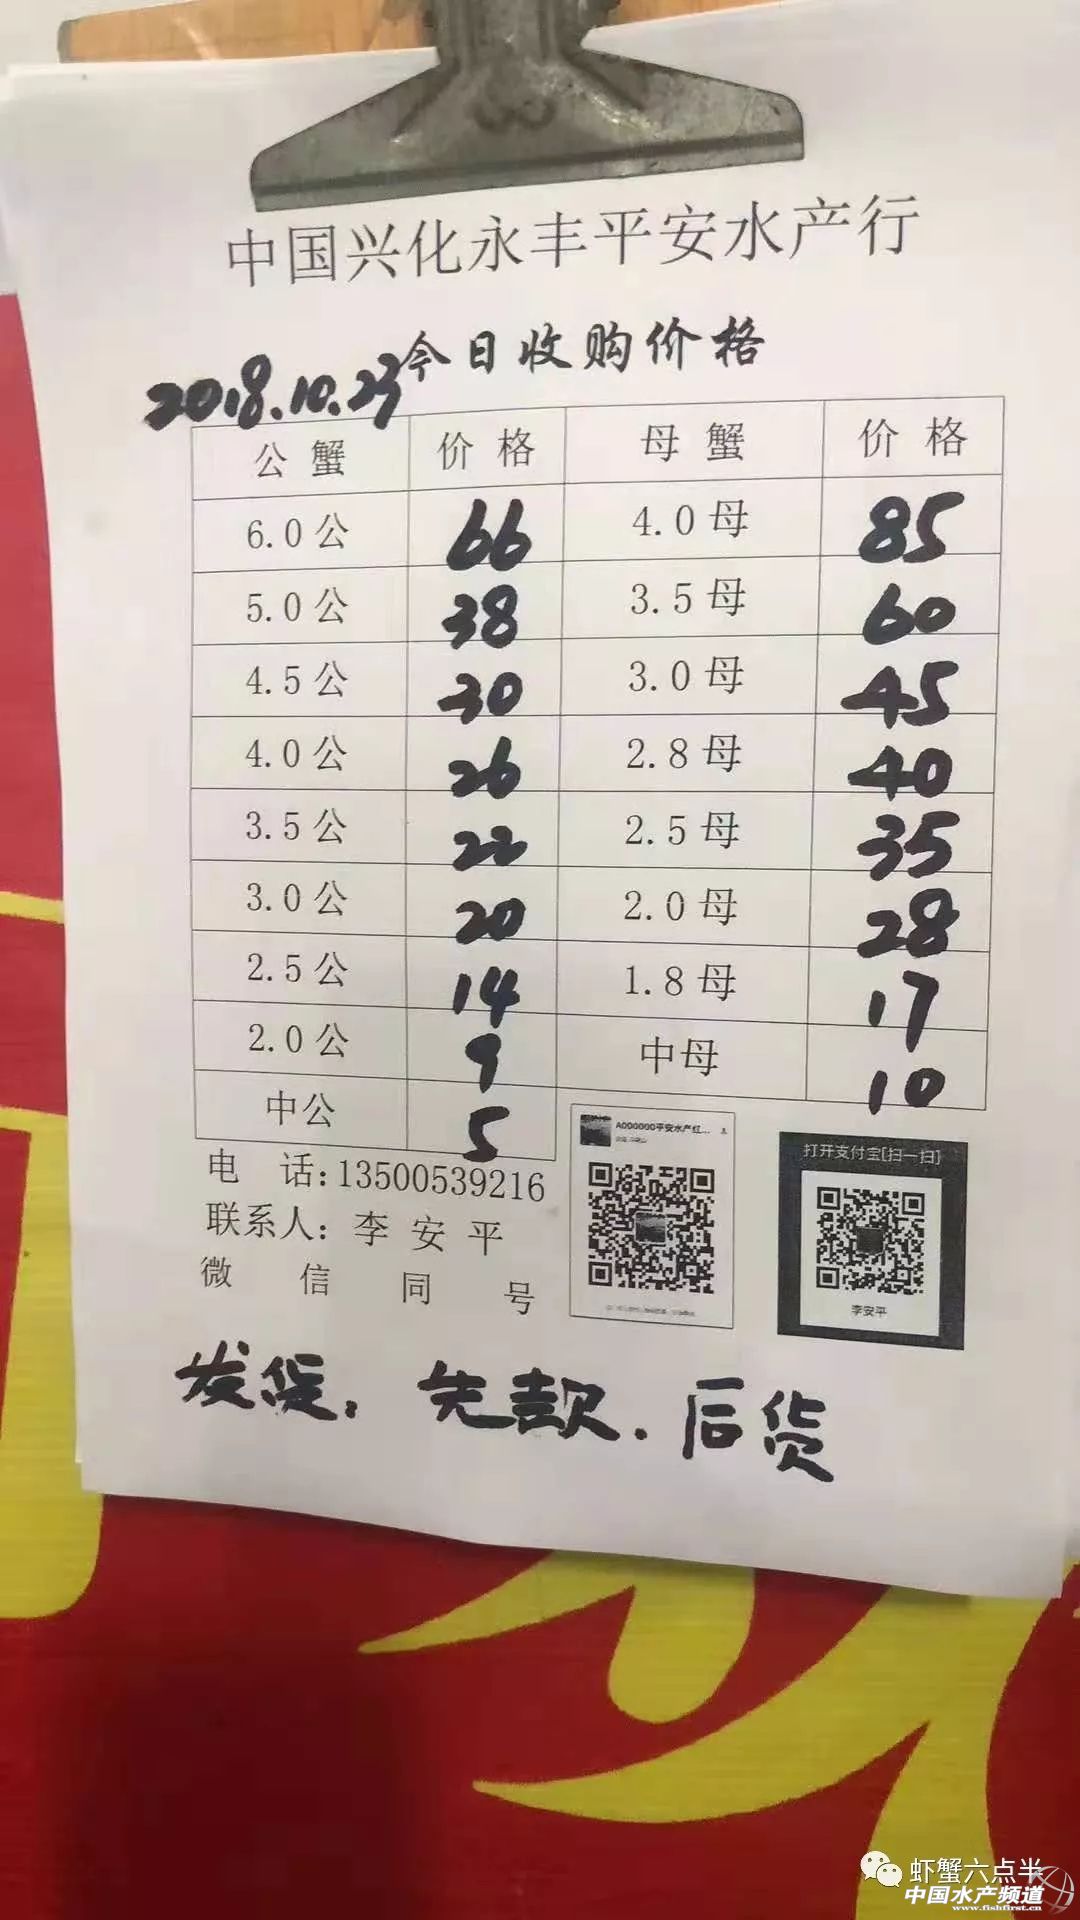 中国兴化永丰平安水产行
2018.10.23 今日收购价格
公蟹 价格 母蟹 价格
6.0公 66 4.0母 85
5.0公 38 3.5母 60
4.5公 30 3.0母 45
4.0公 26 2.8母 40
3.5公 22 2.5母 35
3.0公 20 2.0母 28
2.5公 14 1.8母 17
2.0公 9 中母 10
中公 5
电 话:13500539216
联系人: 李安平
微 信 同 号
A000000平安水产红...
打开支付宝[扫一扫]
李安平
发货, 先款. 后货
虾蟹六点半
中国水产频道
www.fishfirst.cn